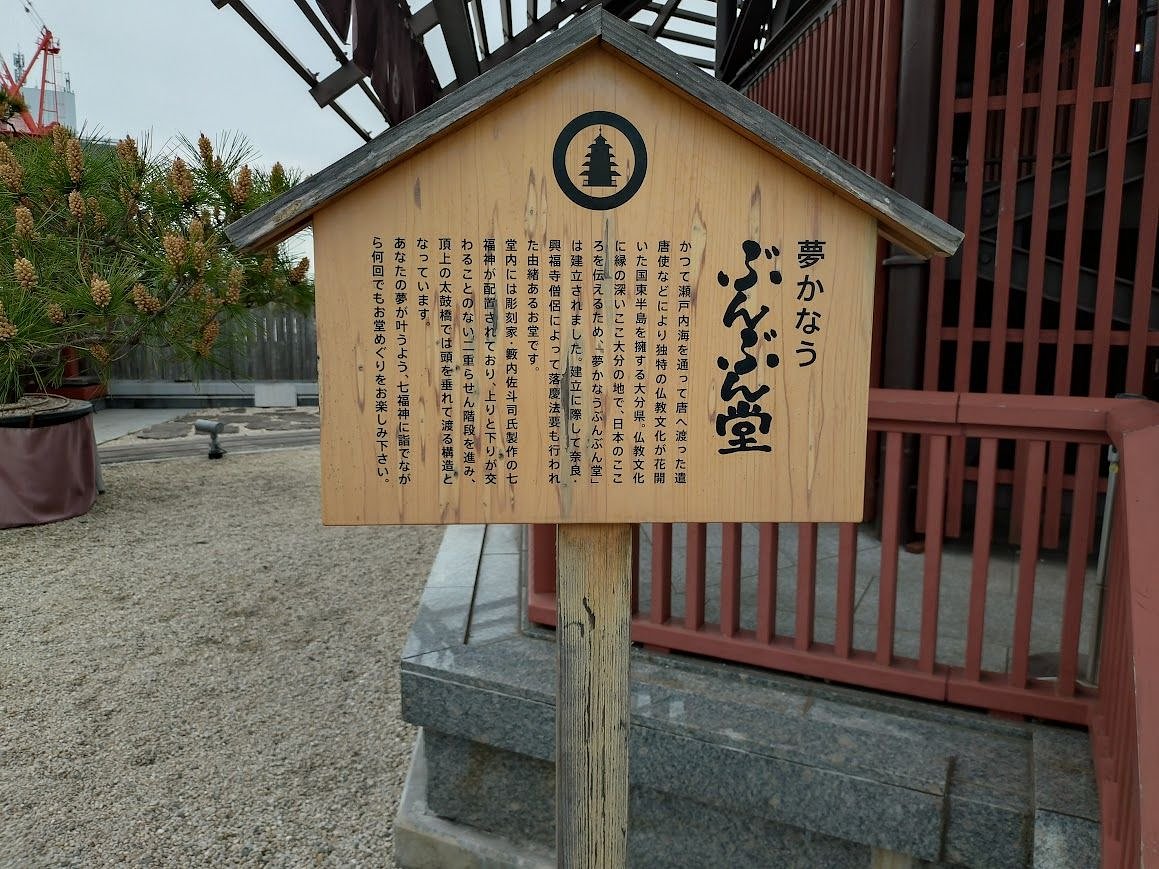 夢かなう
ぶんぶん堂
かつて瀬戸内海を通って唐へ渡った遣
唐使などにより独特の仏教文化が花開
いた国東半島を擁する大分県。仏教文化
に縁の深いここ大分の地で、日本のここ
ろを伝えるため、「夢かなうぶんぶん堂」
は建立されました。建立に際して奈良・
興福寺僧侶によって落慶法要も行われ
た由緒あるお堂です。
堂内には彫刻家・籔内佐斗司氏製作の七
福神が配置されており、上りと下りが交
わることのない二重らせん階段を進み、
頂上の太鼓橋では頭を垂れて渡る構造と
なっています。
あなたの夢が叶うよう、七福神に詣でなが
ら何回でもお堂めぐりをお楽しみ下さい。